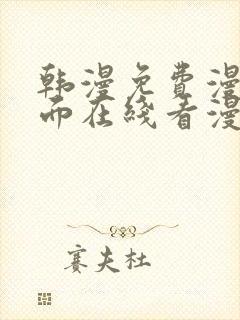 韩漫免费漫
而在线看漫
赛夫杜